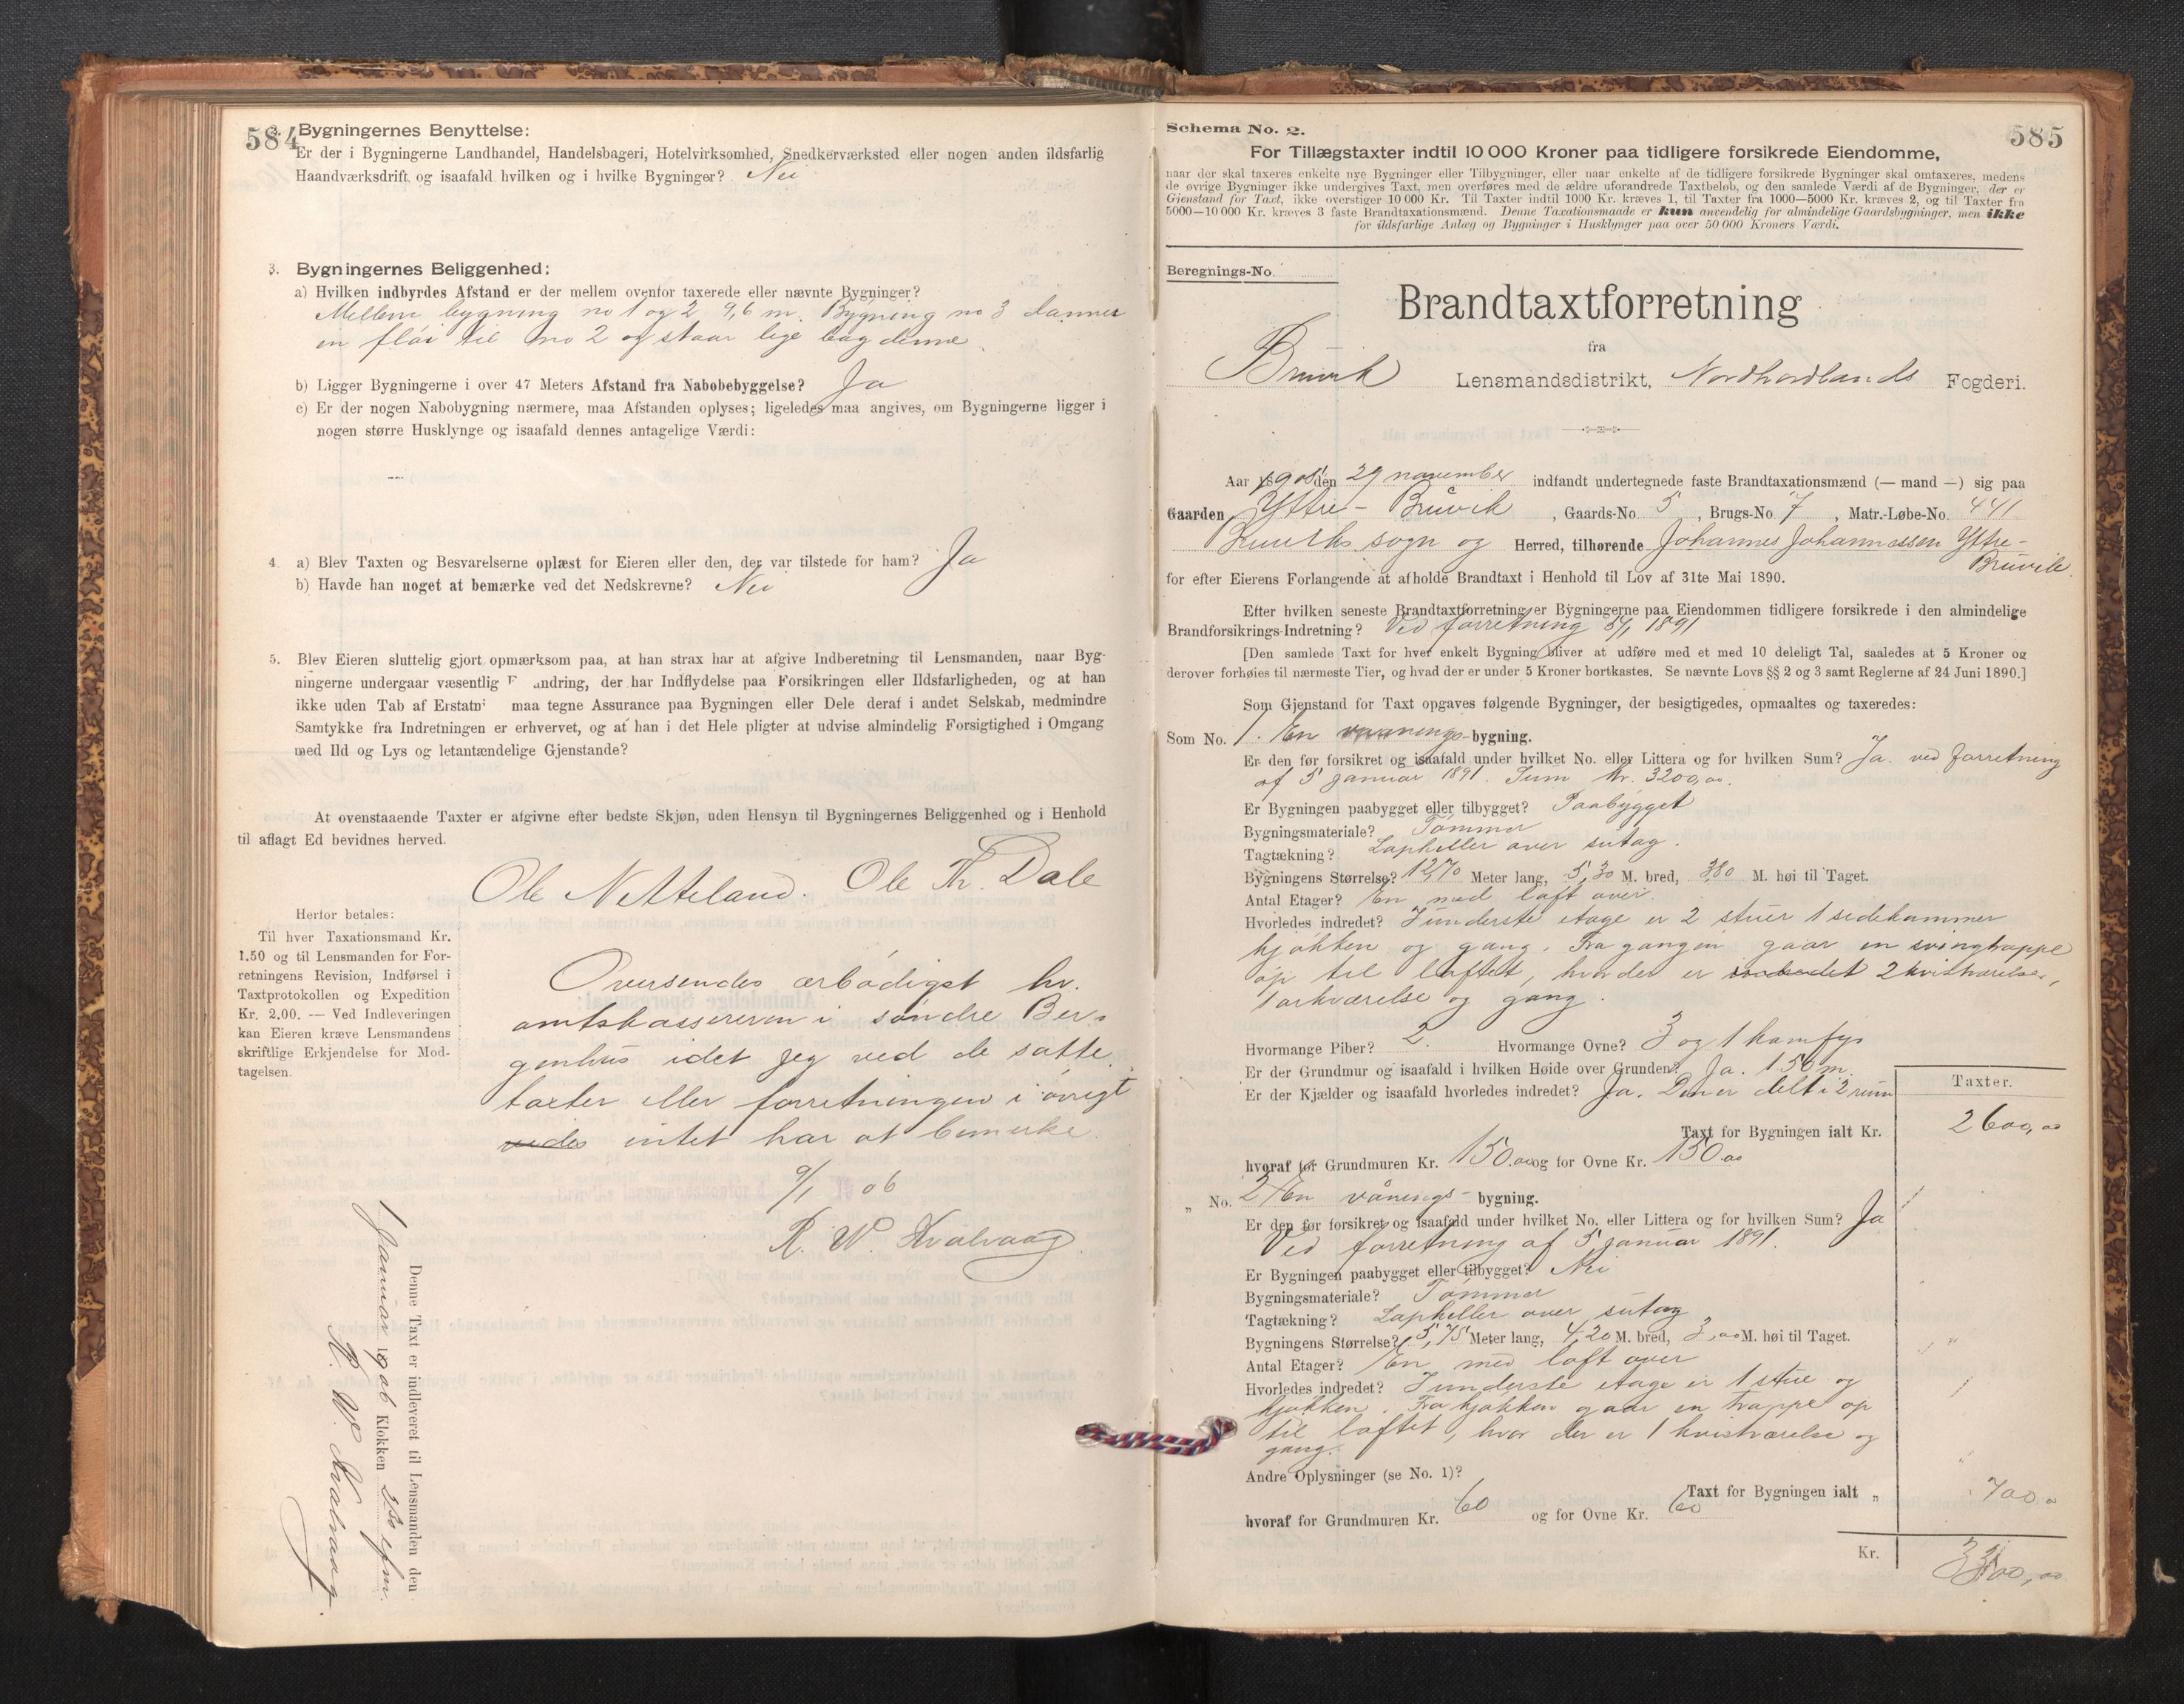 584
2. Bygningernes Benyttelse:
Er der i Bygningerne Landhandel, Handelsbageri, Hotelvirksomhed, Snedkerværksted eller nogen anden ildsfarlig
Haandværksdrift og isaafald hvilken og i hvilke Bygninger? Nei
3. Bygningernes Beliggenhed:
a) Hvilken indbyrdes Afstand er der mellem ovenfor taxerede eller nævnte Bygninger?
Mellem bygning no 1 og 2 9,6 m. Bygning no 3 danner
en fløi til no 2 og staar lige bag denne
b) Ligger Bygningerne i over 47 Meters Afstand fra Nabobebyggelse? Ja
c) Er der nogen Nabobygning nærmere, maa Afstanden oplyses; ligeledes maa angives, om Bygningerne ligger i
nogen større Husklynge og isaafald dennes antagelige Værdi:
—
4. a) Blev Taxten og Besvarelserne oplæst for Eieren eller den, der var tilstede for ham? Ja
b) Havde han noget at bemærke ved det Nedskrevne? Nei
5. Blev Eieren sluttelig gjort opmærksom paa, at han strax har at afgive Indberetning til Lensmanden, naar Byg-
ningerne undergaar væsentlig F andring, der har Indflydelse paa Forsikringen eller Ildsfarligheden, og at han
ikke uden Tab af Erstatn maa tegne Assurance paa Bygningen eller Dele deraf i andet Selskab, medmindre
Samtykke fra Indretningen er erhvervet, og at han i det Hele pligter at udvise almindelig Forsigtighed i Omgang
med Ild og Lys og letantændelige Gjenstande?
At ovenstaaende Taxter er afgivne efter bedste Skjøn, uden Hensyn til Bygningernes Beliggenhed og i Henhold
til aflagt Ed bevidnes herved.
Ole Netteland. Ole Th. Dale
Herfor betales:
Til hver Taxationsmand Kr.
1.50 og til Lensmanden for For-
retningens Revision, Indførsel i
Taxtprotokollen og Expedition
Kr. 2.00. — Ved Indleveringen
kan Eieren kræve Lensmandens
skriftlige Erkjendelse for Mod-
tagelsen.
Oversendes ærbødigst hr.
amtskassereren i søndre Ber-
genhus idet jeg ved de satte
taxter eller forretningen i øvrigt
intet har at bemerke.
9/1 06
R. W. Kvalvaag
Denne Taxt er indleveret til Lensmanden den
1 Januar 1906 Klokken efm.
R. W. Kvalvaag.
585
Schema No. 2.
For Tillægstaxter indtil 10 000 Kroner paa tidligere forsikrede Eiendomme,
naar der skal taxeres enkelte nye Bygninger eller Tilbygninger, eller naar enkelte af de tidligere forsikrede Bygninger skal omtaxeres, medens
de øvrige Bygninger ikke undergives Taxt, men overføres med de ældre uforandrede Taxtbeløb, og den samlede Værdi af de Bygninger, der er
Gjenstand for Taxt, ikke overstiger 10 000 Kr. Til Taxter indtil 1000 Kr. kræves 1, til Taxter fra 1000—5000 Kr. kræves 2, og til Taxter fra
5000—10 000 Kr. kræves 3 faste Brandtaxationsmænd. Denne Taxationsmaade er kun anvendelig for almindelige Gaardsbygninger, men ikke
for ildsfarlige Anlæg og Bygninger i Husklynger paa over 50 000 Kroners Værdi.
Beregnings-No.
Brandtaxtforretning
fra
Bruvik Lensmandsdistrikt, Nordhordlands Fogderi.
Aar 1905 den 29 november indfandt undertegnede faste Brandtaxationsmænd (— mand —) sig paa
Gaarden Yttre-Bruvik, Gaards-No. 5, Brugs-No. 7, Matr.-Løbe-No. 441
Bruviks sogn og Herred, tilhørende Johannes Johannessen Yttre-
Bruvik
for efter Eierens Forlangende at afholde Brandtaxt i Henhold til Lov af 31te Mai 1890.
Efter hvilken seneste Brandtaxtforretning er Bygningerne paa Eiendommen tidligere forsikrede i den almindelige
Brandforsikrings-Indretning? Ved forretning 5/1 1891
[Den samlede Taxt for hver enkelt Bygning bliver at udføre med et med 10 deleligt Tal, saaledes at 5 Kroner og
derover forhøies til nærmeste Tier, og hvad der er under 5 Kroner bortkastes. Se nævnte Lovs §§ 2 og 3 samt Reglerne af 24 Juni 1890.]
Som Gjenstand for Taxt opgaves følgende Bygninger, der besigtigedes, opmaaltes og taxeredes:
Som No. 1. En vaanings-bygning.
Er den før forsikret og isaafald under hvilket No. eller Littera og for hvilken Sum? Ja. ved forretning
af 5 januar 1891. Sum kr. 3200,00.
Er Bygningen paabygget eller tilbygget? Paabygget
Bygningsmateriale? Tømmer
Tagtækning? Lapheller over sutag.
Bygningens Størrelse? 12,70 Meter lang, 5,30 M. bred, 3,80 M. høi til Taget.
Antal Etager? En med loft over.
Hvorledes indredet? I underste etage er 2 stuer 1 sidekammer
kjøkken og gang. Fra gangen gaar en svingtrappe
op til loftet, hvor der er 2 kvistværelser,
1 arkværelse og gang.
Hvormange Piber? 2. Hvormange Ovne? 3 og 1 komfyr
Er der Grundmur og isaafald i hvilken Høide over Grunden? Ja. 1.50 m.
Er der Kjælder og isaafald hvorledes indredet? Ja. Den er delt i 2 rum
Taxter.
Taxt for Bygningen ialt Kr. 2600,00
hvoraf for Grundmuren Kr. 150.00 og for Ovne Kr. 150.00
„ No. 2 En vånings-bygning.
Er den før forsikret og isaafald under hvilket No. eller Littera og for hvilken Sum? Ja
Ved forretning af 5 januar 1891.
Er Bygningen paabygget eller tilbygget? Nei
Bygningsmateriale? Tømmer
Tagtækning? Lapheller over sutag
Bygningens Størrelse? 5,75 Meter lang, 4,20 M. bred, 3,00 M. høi til Taget.
Antal Etager? En med loft over
Hvorledes indredet? I underste etage er 1 stue og
kjøkken. Fra kjøkken gaar en trappe op
til loftet, hvor der er 1 kvistværelse og
gang.
Andre Oplysninger (se No. 1)?
Taxt for Bygningen ialt „ 700.00
hvoraf for Grundmuren Kr. 60 og for Ovne Kr. 60
Kr. 3300,00